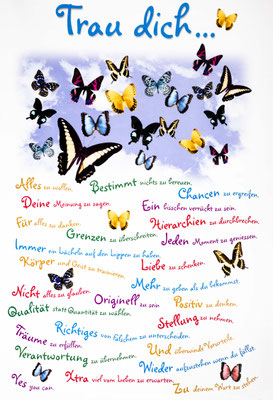 Trau dich...
Alles zu wollen.
Bestimmt nichts zu bereuen.
Chancen zu ergreifen.
Deine Meinung zu sagen.
Ein bisschen verrückt zu sein.
Für alles zu danken.
Hierarchien zu durchbrechen.
Grenzen zu überschreiten.
Jeden Moment zu geniessen.
Immer ein Lächeln auf den Lippen zu haben.
Körper und Geist zu trainieren.
Liebe zu schenken.
Mehr zu geben als du bekommst.
Nicht alles zu glauben.
Originell zu sein.
Positiv zu denken.
Qualität statt Quantität zu wählen.
Stellung zu nehmen.
Richtiges von Falschem zu unterscheiden.
Träume zu erfüllen.
Und überwinde Vorurteile.
Verantwortung zu übernehmen.
Wieder aufzustehen wenn du fällst.
Yes you can.
Xtra viel vom Leben zu erwarten.
Zu deinem Wort zu stehen.